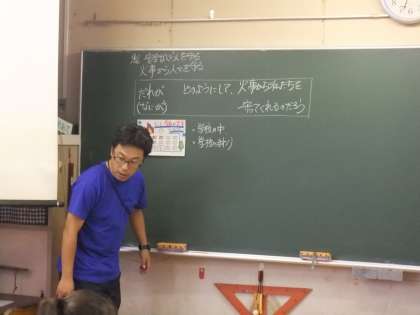 火事から人々を守る
だれが どのようにして、火事から私たちを
(なにが) 守ってくれるのだろう
・学校の中
・学校のまわり